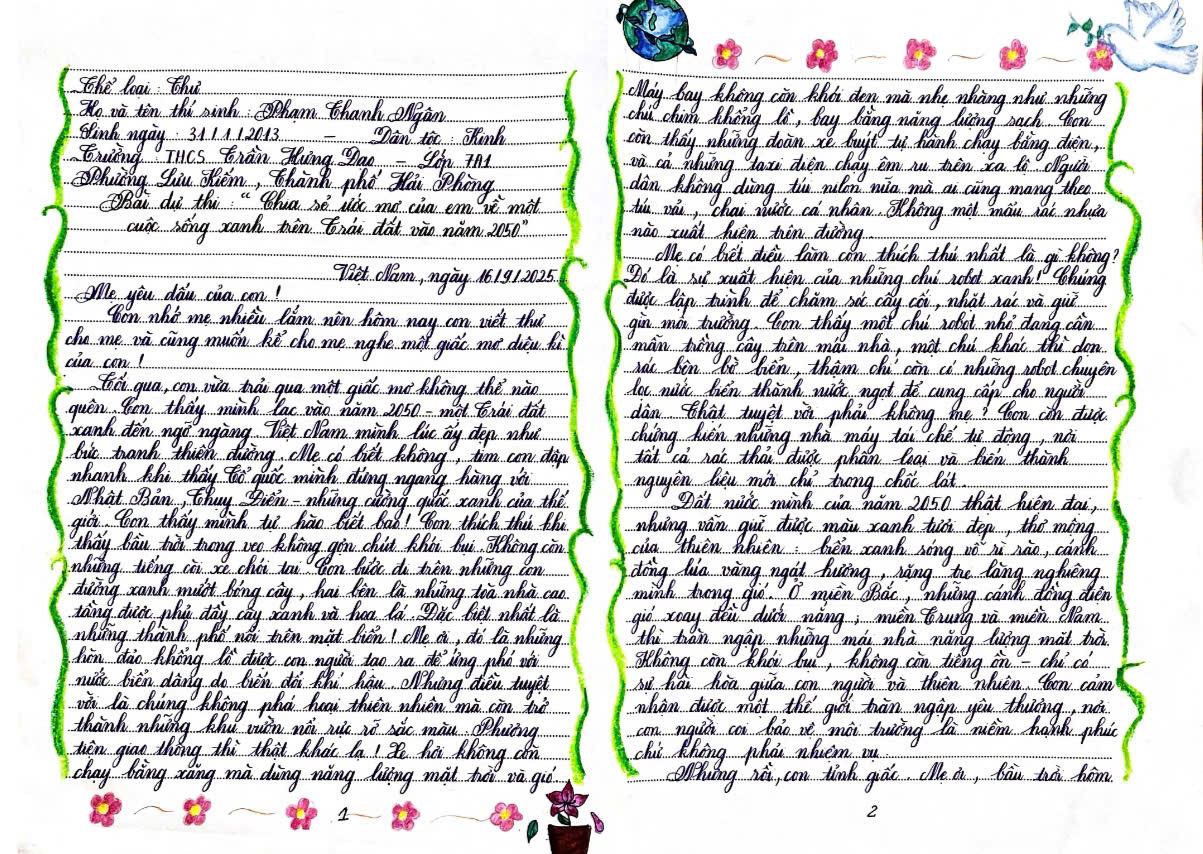 Thể loại : Thư
Họ và tên thí sinh : Phạm Thanh Ngân
Sinh ngày : 31/11/2013 – Dân tộc : Kinh
Trường : THCS Trần Hưng Đạo – Lớp 7A1
Phường Lưu Kiếm , Thành phố Hải Phòng
Bài dự thi : “ Chia sẻ ước mơ của em về một
cuộc sống xanh trên Trái đất vào năm 2050”
Việt Nam , ngày 16/9/2025
Mẹ yêu dấu của con !
Con nhớ mẹ nhiều lắm nên hôm nay con viết thư
cho mẹ và cũng muốn kể cho mẹ nghe một giấc mơ diệu kì
của con !
Tối qua, con vừa trải qua một giấc mơ không thể nào
quên. Con thấy mình lạc vào năm 2050 – một Trái đất
xanh đến ngỡ ngàng. Việt Nam mình lúc ấy đẹp như
bức tranh thiên đường. Mẹ có biết không , tim con đập
nhanh khi thấy Tổ quốc mình đứng ngang hàng với
Nhật Bản , Thụy Điển – những cường quốc xanh của thế
giới . Con thấy mình tự hào biết bao ! Con thích thú khi
thấy bầu trời trong veo không gợn chút khói bụi . Không còn
những tiếng còi xe chói tai . Con bước đi trên những con
đường xanh mướt bóng cây , hai bên là những toà nhà cao
tầng được phủ đầy cây xanh và hoa lá . Đặc biệt nhất là
những thành phố nổi trên mặt biển ! Mẹ ơi , đó là những
hòn đảo khổng lồ được con người tạo ra để ứng phó với
nước biển dâng do biến đổi khí hậu . Nhưng điều tuyệt
vời là chúng không phá hoại thiên nhiên mà còn trở
thành những khu vườn nổi rực rỡ sắc màu . Phương
tiện giao thông thì thật khác lạ ! Xe hơi không còn
chạy bằng xăng mà dùng năng lượng mặt trời và gió .
1
Máy bay không còn khói đen mà nhẹ nhàng như những
chú chim khổng lồ , bay bằng năng lượng sạch . Con
còn thấy những đoàn xe buýt tự hành chạy bằng điện ,
và cả những taxi điện chạy êm ru trên xa lộ . Người
dân không dùng túi nilon nữa mà ai cũng mang theo
túi vải , chai nước cá nhân . Không một mẩu rác nhựa
nào xuất hiện trên đường .
Mẹ có biết điều làm con thích thú nhất là gì không ?
Đó là sự xuất hiện của những chú robot xanh ! Chúng
được lập trình để chăm sóc cây cối , nhặt rác và giữ
gìn môi trường . Con thấy một chú robot nhỏ đang cần
mẫn trồng cây trên mái nhà , một chú khác thì dọn
rác bên bờ biển , thậm chí còn có những robot chuyên
lọc nước biển thành nước ngọt để cung cấp cho người
dân . Thật tuyệt vời phải không mẹ ? Con còn được
chứng kiến những nhà máy tái chế tự động , nơi
tất cả rác thải được phân loại và biến thành
nguyên liệu mới chỉ trong chốc lát .
Đất nước mình của năm 2050 thật hiện đại ,
nhưng vẫn giữ được màu xanh tươi đẹp , thơ mộng
của thiên nhiên : biển xanh sóng vỗ rì rào , cánh
đồng lúa vàng ngát hương , rặng tre làng nghiêng
mình trong gió . Ở miền Bắc , những cánh đồng điện
gió xoay đều dưới nắng ; miền Trung và miền Nam
thì tràn ngập những mái nhà năng lượng mặt trời .
Không còn khói bụi , không còn tiếng ồn – chỉ có
sự hài hòa giữa con người và thiên nhiên . Con cảm
nhận được một thế giới tràn ngập yêu thương , nơi
con người coi bảo vệ môi trường là niềm hạnh phúc
chứ không phải nhiệm vụ .
Nhưng rồi , con tỉnh giấc . Mẹ ơi , bầu trời hôm
2